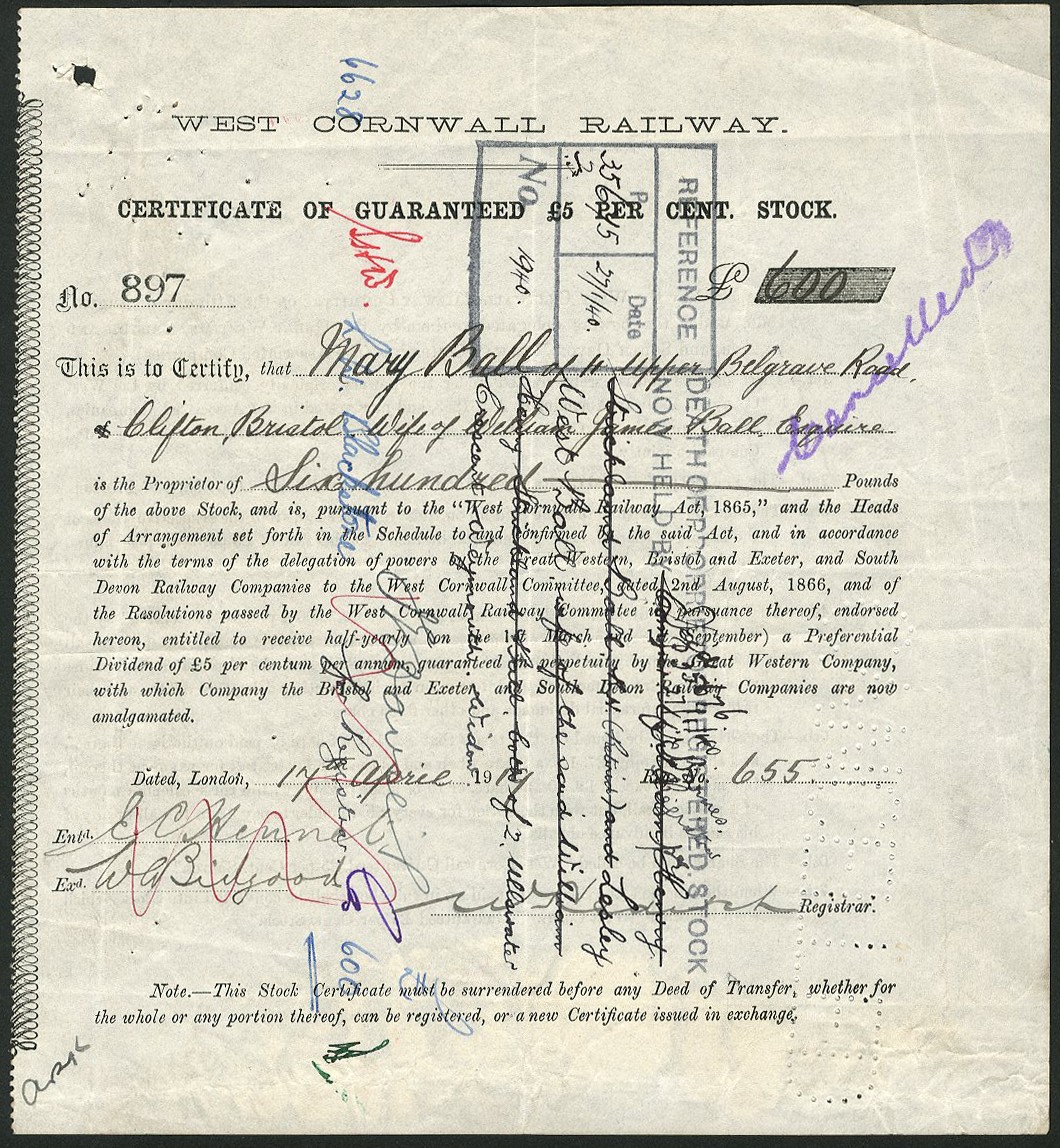 6628
WEST CORNWALL RAILWAY.
CERTIFICATE OF GUARANTEED £5 PER CENT. STOCK.
No. 897
£ 600
Cancelled
This is to Certify, that Mary Ball of 11 Upper Belgrave Road,
Clifton Bristol. Wife of William James Ball Esquire
is the Proprietor of Six hundred Pounds
of the above Stock, and is, pursuant to the "West Cornwall Railway Act, 1865," and the Heads
of Arrangement set forth in the Schedule to and confirmed by the said Act, and in accordance
with the terms of the delegation of powers of the Great Western, Bristol and Exeter, and South
Devon Railway Companies to the West Cornwall Committee, dated 2nd August, 1866, and of
the Resolutions passed by the West Cornwall Railway Committee in pursuance thereof, endorsed
hereon, entitled to receive half-yearly (on the 1st March and 1st September) a Preferential
Dividend of £5 per centum per annum, guaranteed in perpetuity by the Great Western Company,
with which Company the Bristol and Exeter and South Devon Railway Companies are now
amalgamated.
Dated, London, 17 April 1919
Reg. No. 655.
Entd. E C Kennet
Exd. W A Bidgood
Registrar.
Note.—This Stock Certificate must be surrendered before any Deed of Transfer, whether for
the whole or any portion thereof, can be registered, or a new Certificate issued in exchange.
REFERENCE
Date
27/1/40.
No.
1940.
NOW HELD BY
REGISTERED STOCK
West Ball wife of the said William
Crescent Weymouth. Widow
both of 2. Ullswater
Blackstone
for Registrar
600